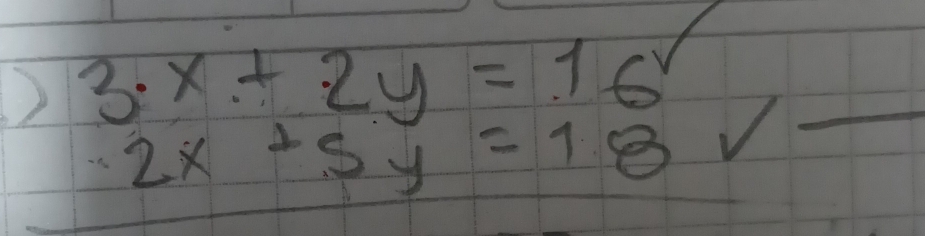 ) 3·x + 2y = 16 ✓
2x + 5y = 18 ✓ —